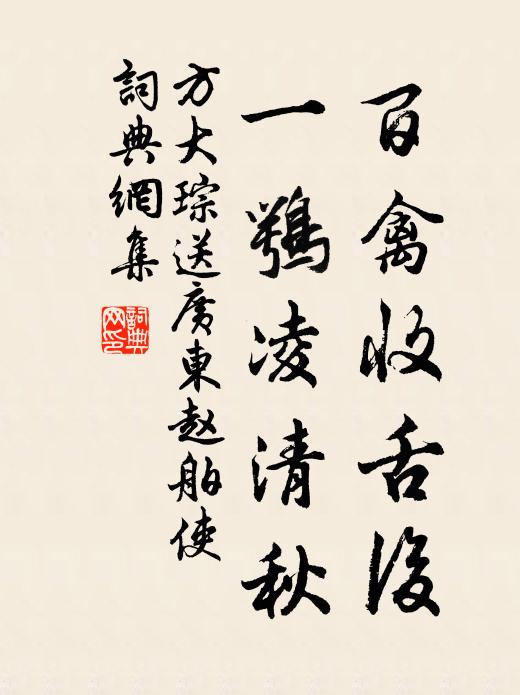 百禽收舌後
一鶚凌清秋
方大琮送廣東赵舶使
詞典網集
詞典网印